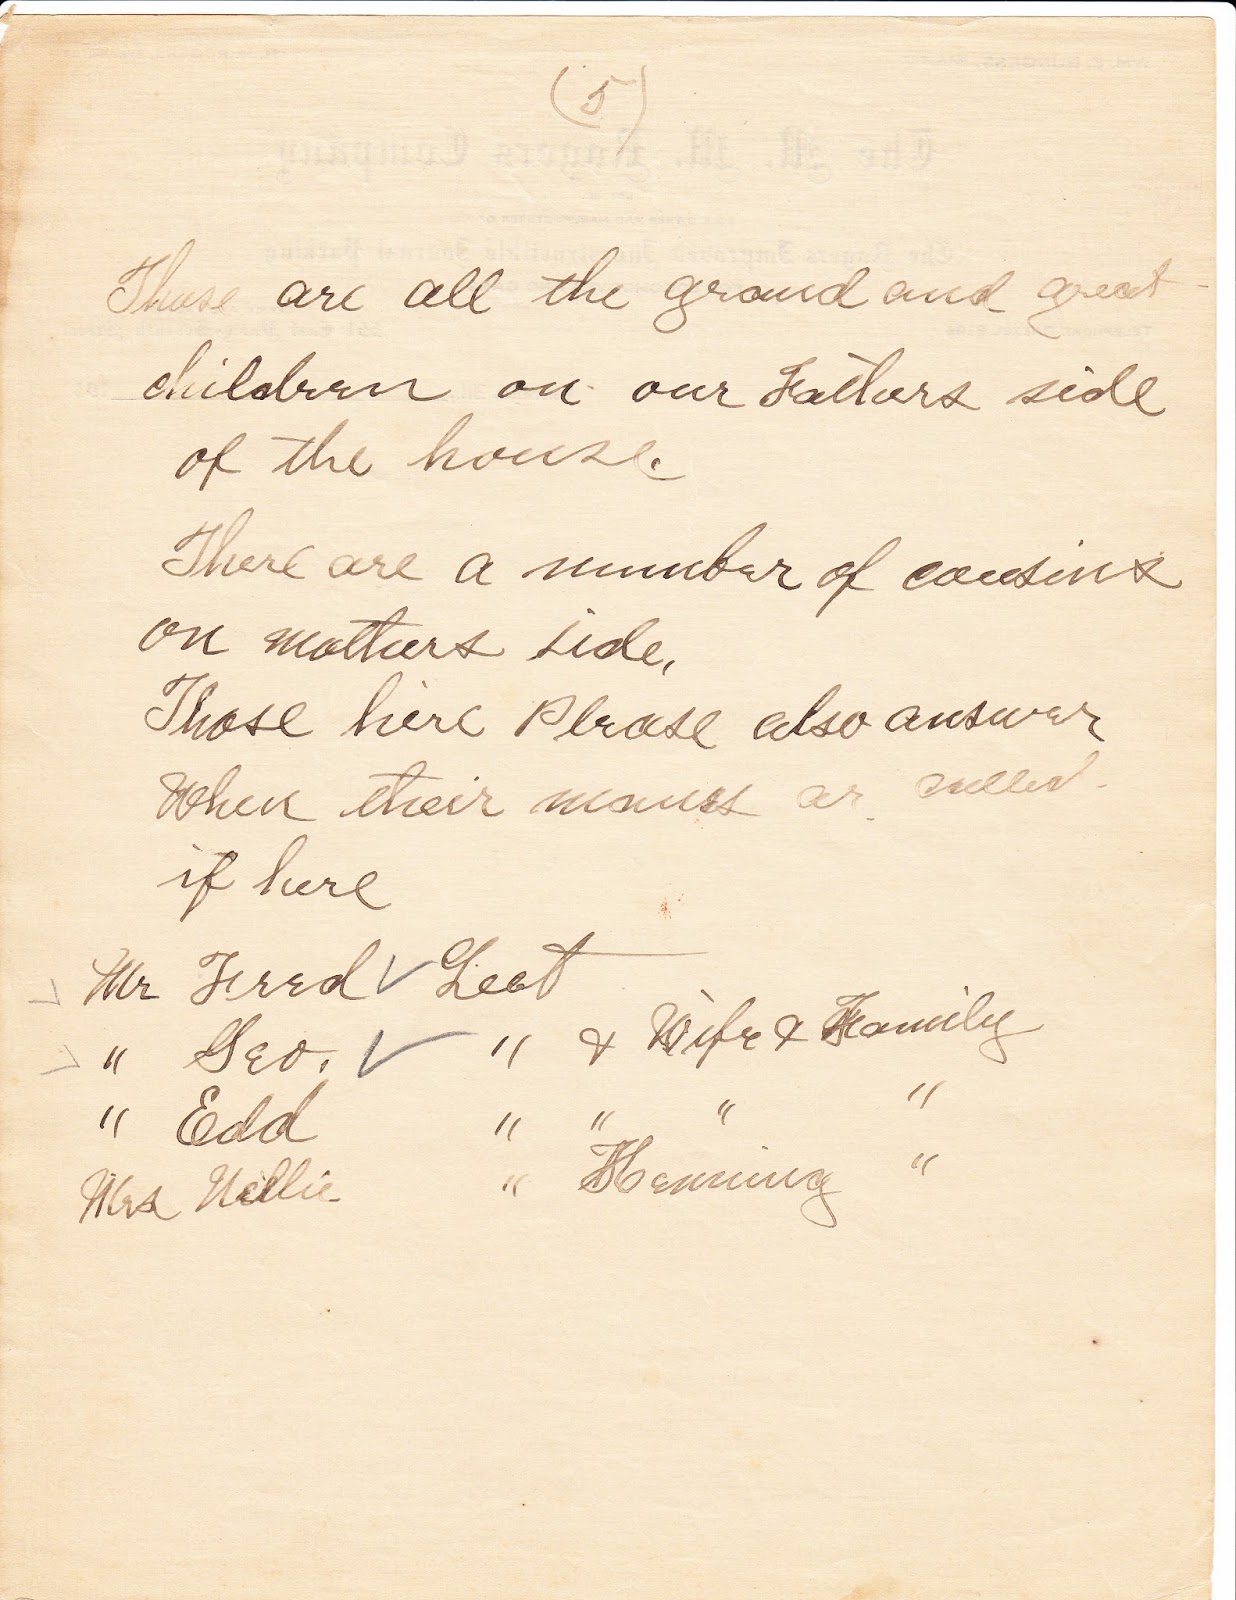 (5)
Those are all the grand and great
children on our Fathers side
of the house.
There are a number of cousins
on mothers side,
Those here Please also answer
When their names ar called.
if here
Mr Fred ✓ Leet
" Geo. ✓ " & Wife & Family
" Edd " " " "
Mrs Nellie " Henning "